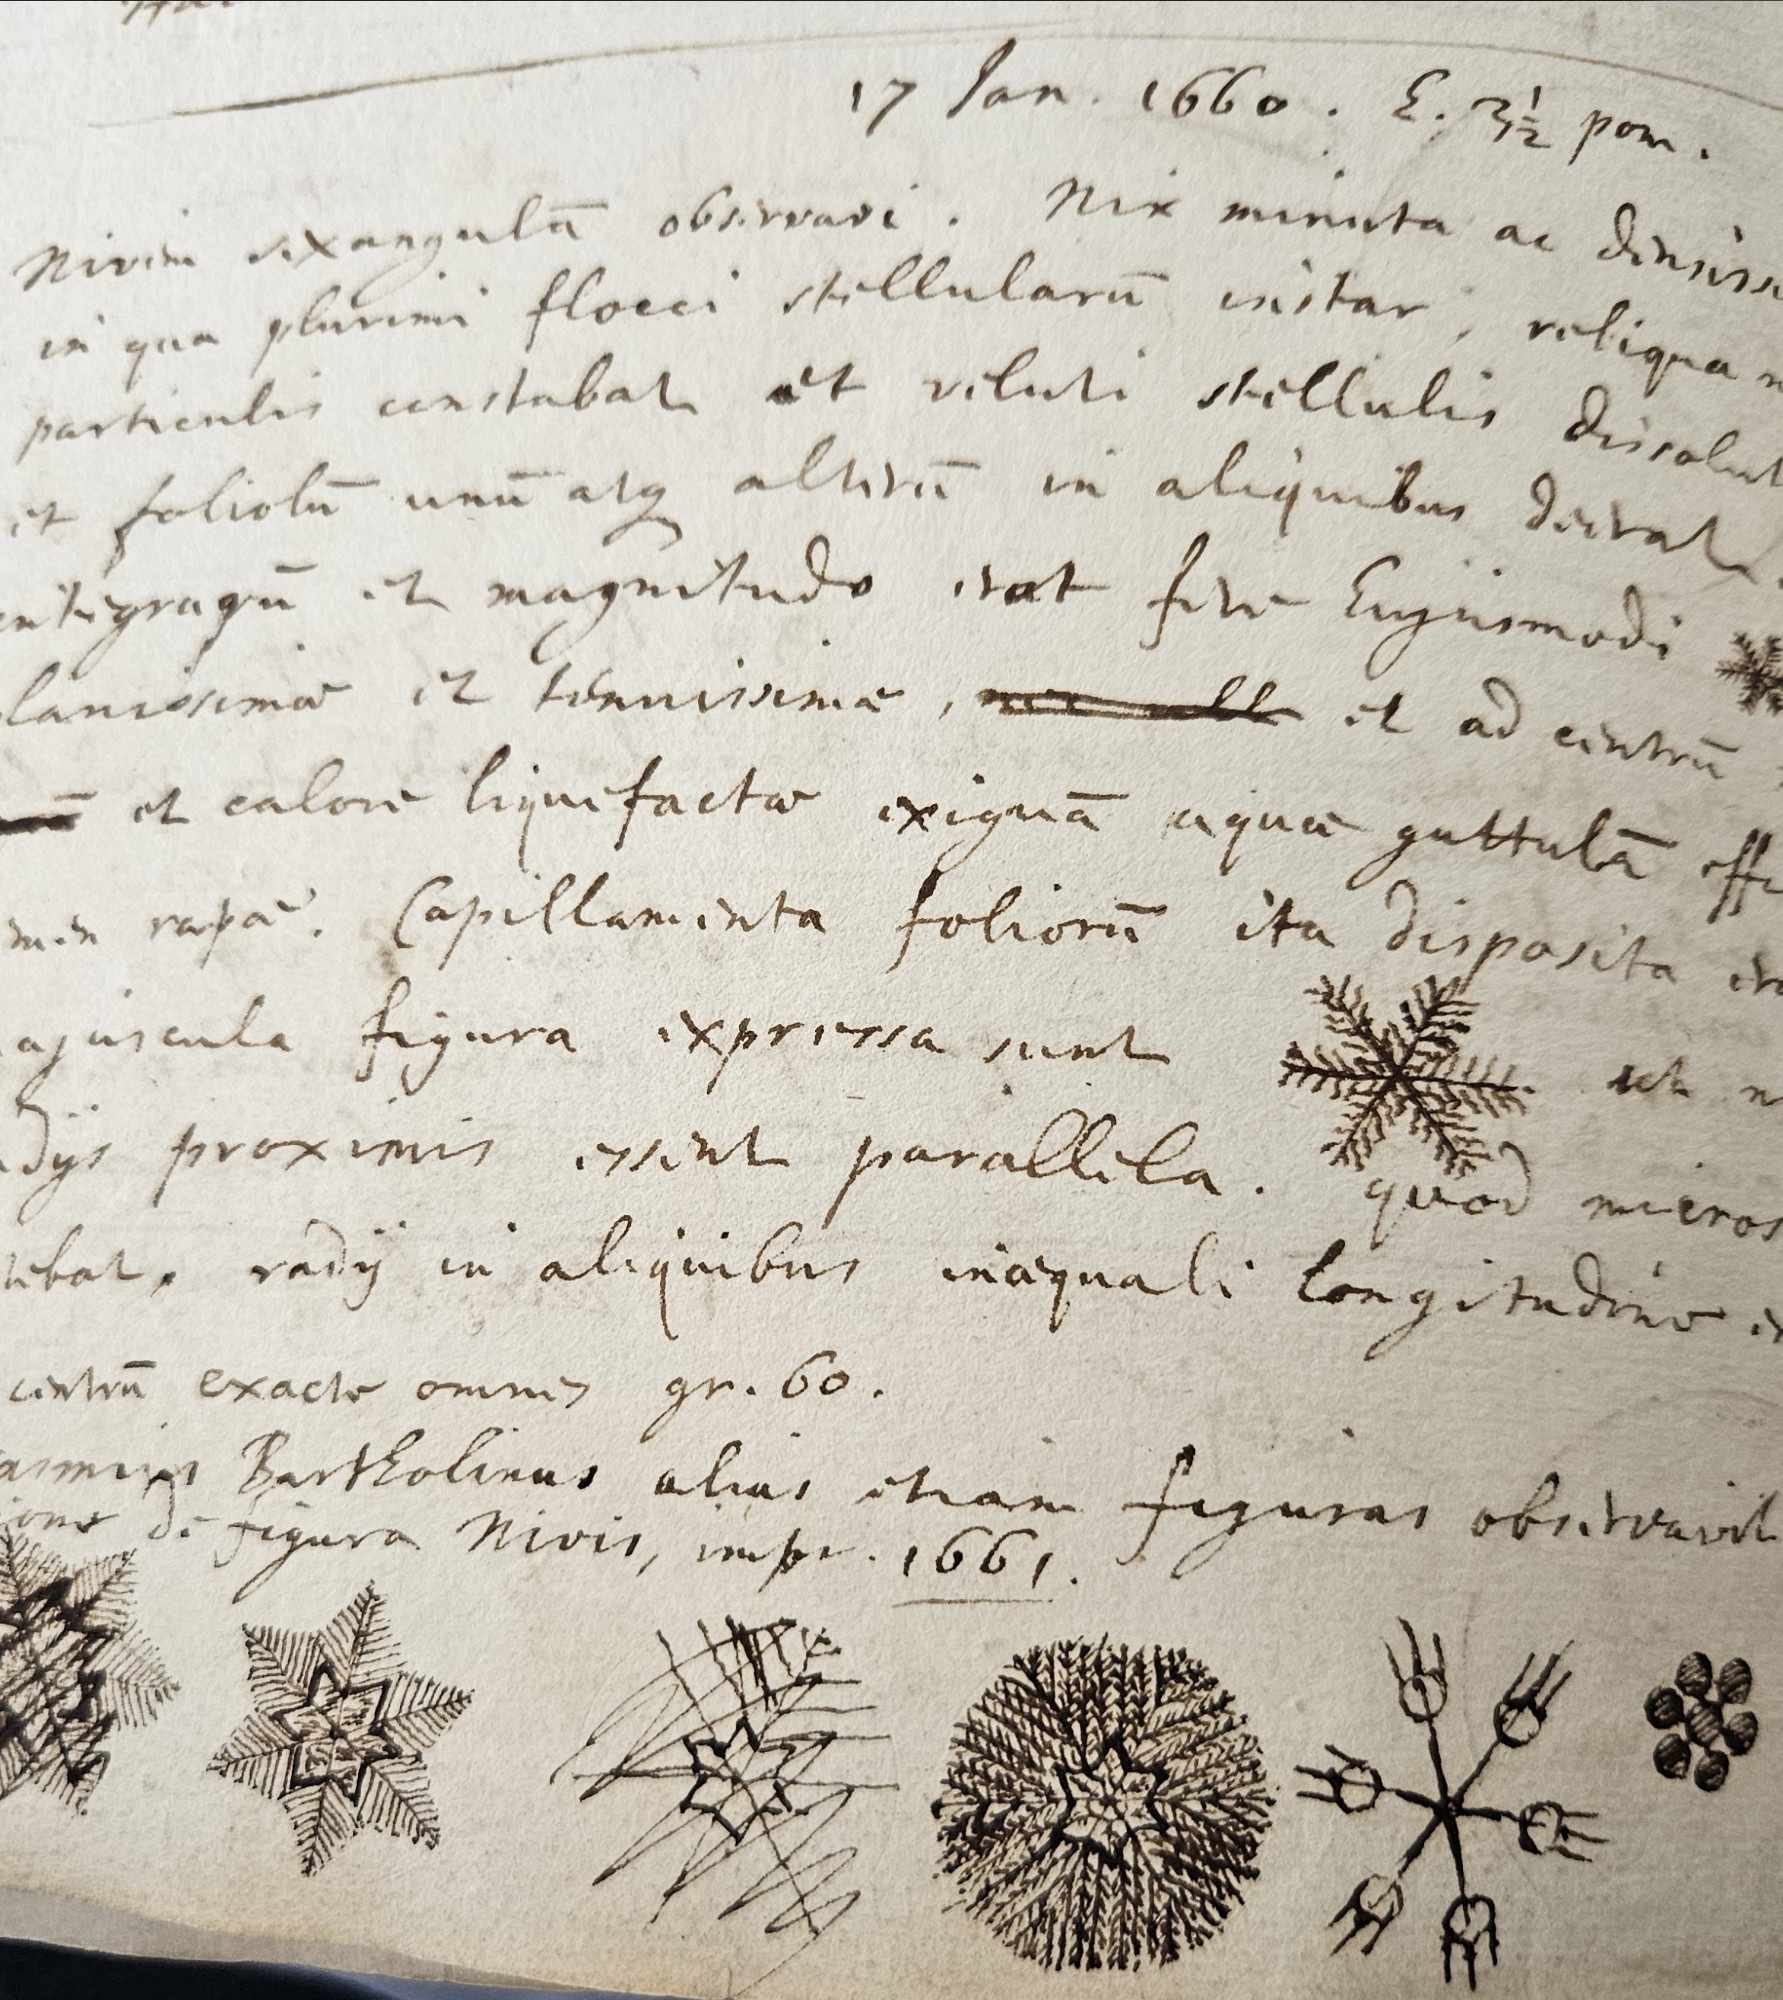 17 Jan. 1660. E. 3½ pom.
Nivem sexangulā observavi. Nix minuta ac densiss
in qua plurimi flocci stellularū instar, reliqua
particulis constabat et veluti stellulis dissolut
et foliolū unū atq alterū in aliquibus deerat
integraqū et magnitudo erat fere Eujusmodi
planissimæ et tenuissimæ, et ad centrū
et calore liquefactæ exiguā aquæ guttulā effi
men rapæ. Capillamenta foliorū ita disposita era
ajuscula figura expressa sunt ut
dijs proximis essent parallela. quod micros
tebat. radij in aliquibus inæquali longitudine
centrū exacte omnes gr. 60.
asmius Bartholinus alias etiam figuras observavit
ione de figura Nivis, impr. 1661.